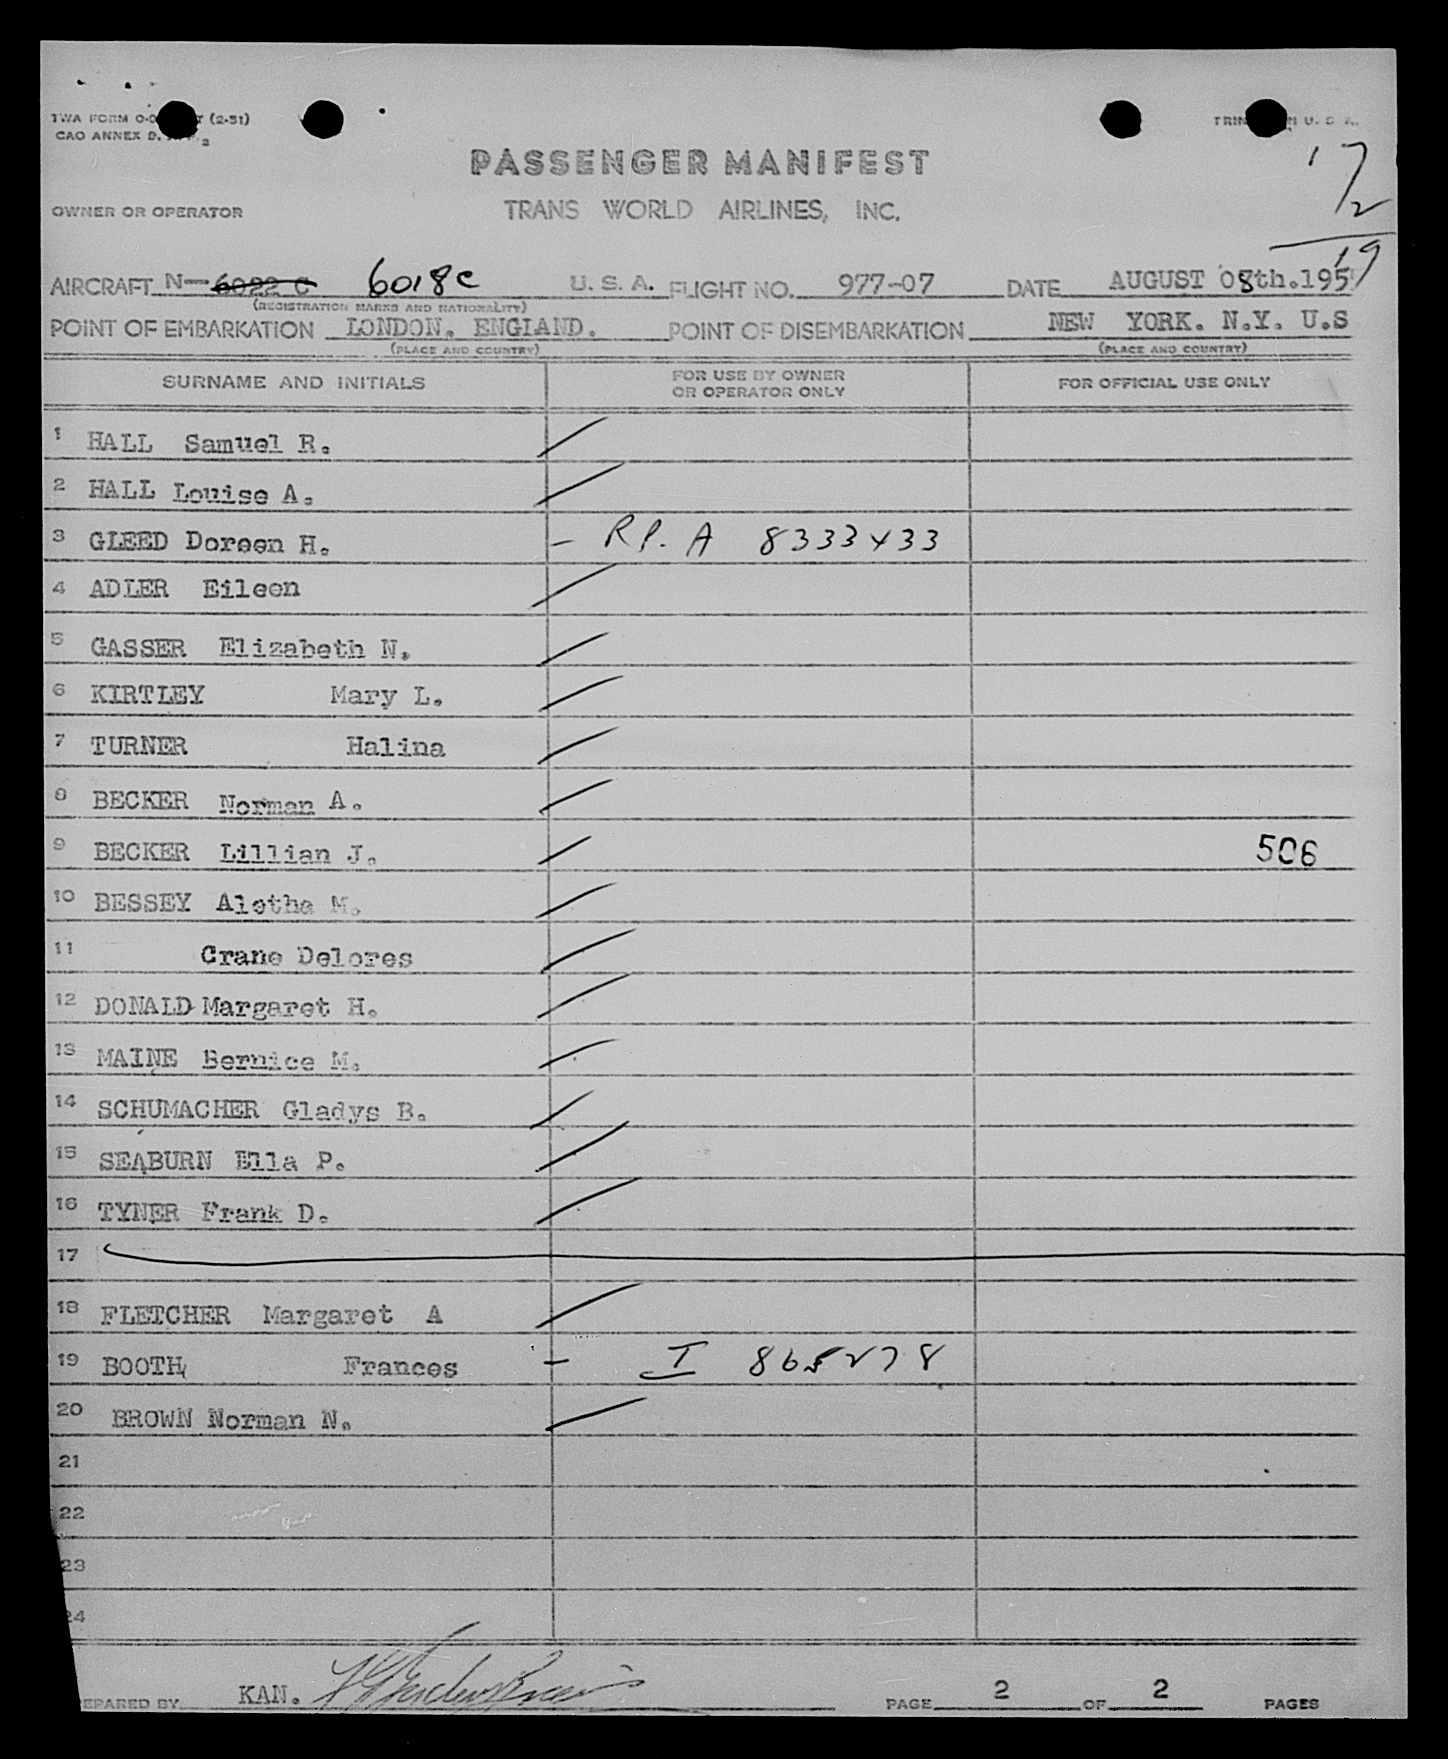 TWA FORM 0-0 T (2-51)
CAO ANNEX 9. 2
U. S. A.
PASSENGER MANIFEST
17/
2
19
OWNER OR OPERATOR TRANS WORLD AIRLINES, INC.
AIRCRAFT N-6022 C 6018C U. S. A. FLIGHT NO. 977-07 DATE AUGUST 08th.195
(REGISTRATION MARKS AND NATIONALITY)
POINT OF EMBARKATION LONDON. ENGLAND. POINT OF DISEMBARKATION NEW YORK. N.Y. U.S
(PLACE AND COUNTRY) (PLACE AND COUNTRY)
SURNAME AND INITIALS FOR USE BY OWNER OR OPERATOR ONLY FOR OFFICIAL USE ONLY
1 HALL Samuel R.
2 HALL Louise A.
3 GLEED Doreen H. - RP. A 8333433
4 ADLER Eileen
5 GASSER Elizabeth N.
6 KIRTLEY Mary L.
7 TURNER Halina
8 BECKER Norman A.
9 BECKER Lillian J. 506
10 BESSEY Aletha M.
11 Crane Delores
12 DONALD Margaret H.
13 MAINE Bernice M.
14 SCHUMACHER Gladys B.
15 SEABURN Ella P.
16 TYNER Frank D.
17
18 FLETCHER Margaret A
19 BOOTH Frances - I 865278
20 BROWN Norman N.
21
22
23
24
PREPARED BY KAN. PAGE 2 OF 2 PAGES